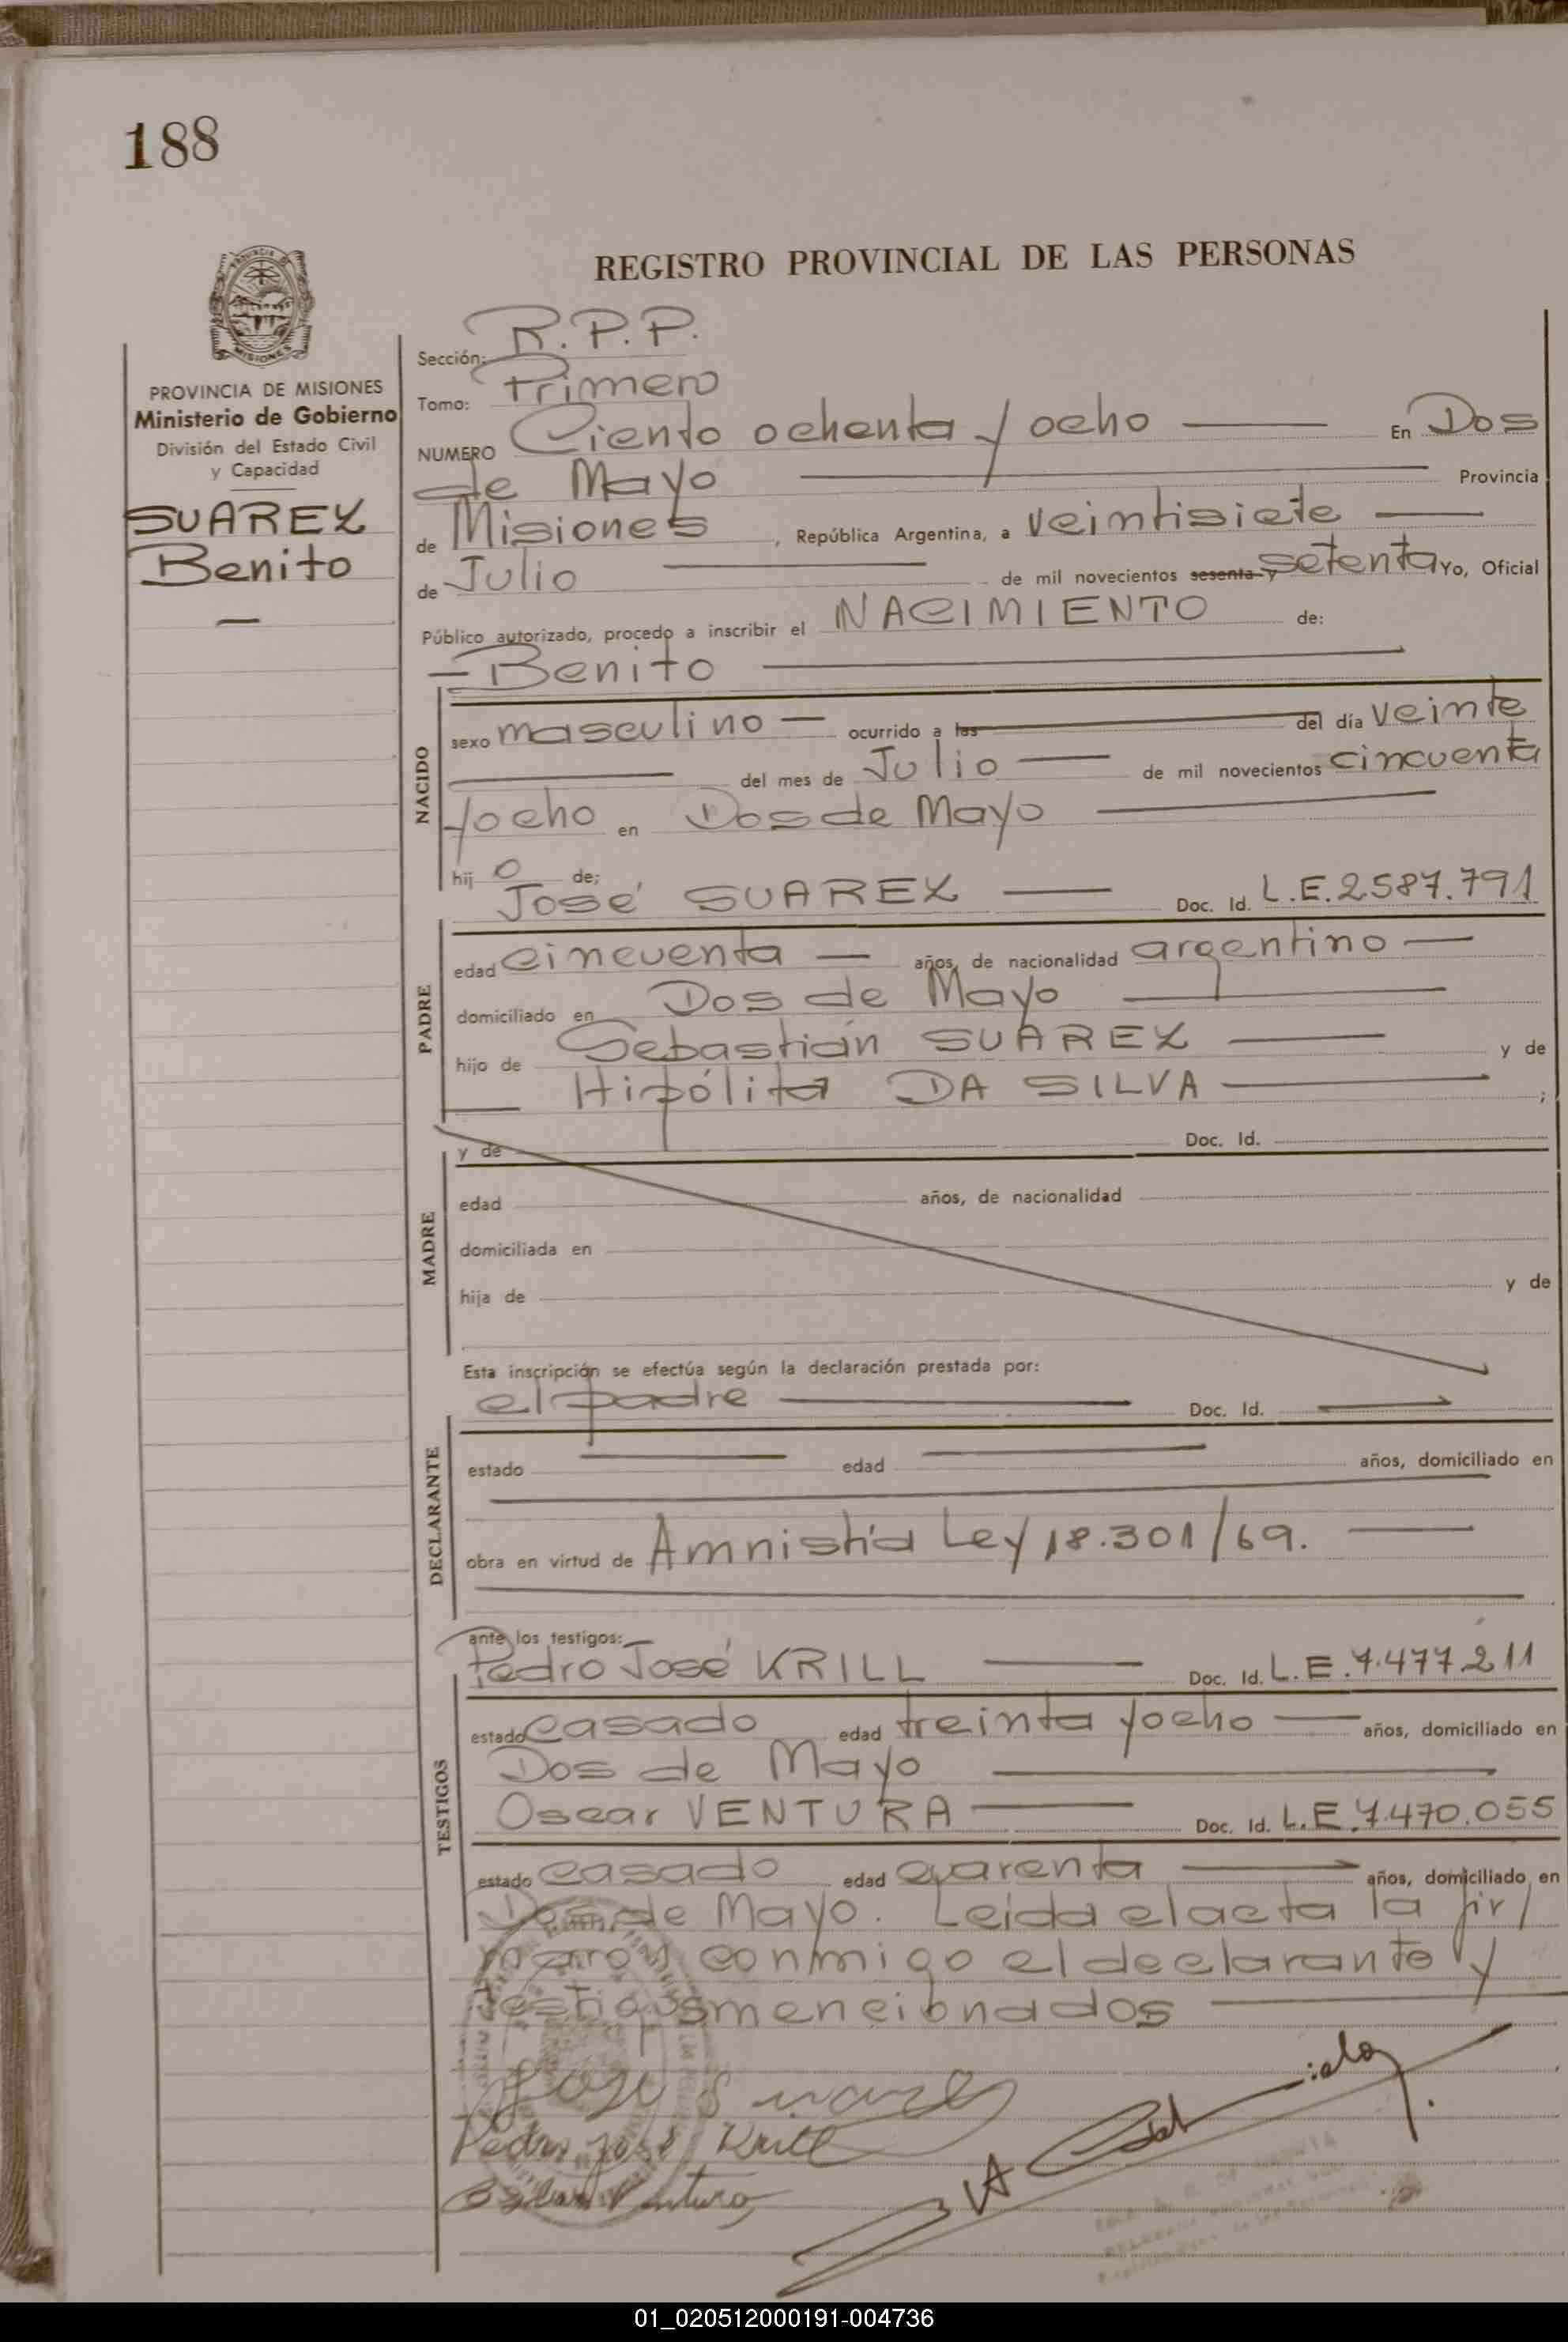 188
REGISTRO PROVINCIAL DE LAS PERSONAS
MISIONES
PROVINCIA DE MISIONES
Ministerio de Gobierno
División del Estado Civil
y Capacidad
SUAREZ
Benito
Sección: R.P.P.
Tomo: Primero
NUMERO Ciento ochenta y ocho En Dos
de Mayo Provincia
de Misiones, República Argentina, a veintisiete
de Julio de mil novecientos sesenta y setenta Yo, Oficial
Público autorizado, procedo a inscribir el NACIMIENTO de:
Benito
NACIDO
sexo masculino ocurrido a las del día veinte
del mes de Julio de mil novecientos cincuenta
y ocho en Dos de Mayo
hijo de;
José SUAREZ Doc. Id. L.E. 2.587.791
PADRE
edad cincuenta años, de nacionalidad argentino
domiciliado en Dos de Mayo
hijo de Sebastián SUAREZ y de
Hipólita DA SILVA ;
y de Doc. Id.
MADRE
edad años, de nacionalidad
domiciliada en
hija de y de
Esta inscripción se efectúa según la declaración prestada por:
el padre Doc. Id.
DECLARANTE
estado edad años, domiciliado en
obra en virtud de Amnistía Ley 18.301/69.
ante los testigos:
Pedro José KRILL Doc. Id. L.E. 7.477.211
TESTIGOS
estado casado edad treinta y ocho años, domiciliado en
Dos de Mayo
Oscar VENTURA Doc. Id. L.E. 7.470.055
estado casado edad cuarenta años, domiciliado en
Dos de Mayo. Leida el acta la fir/
maron conmigo el declarante y
testigos mencionados
José Suarez
Pedro José Krill
Ventura
01_020512000191-004736